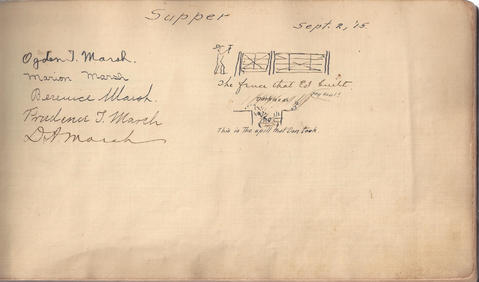 Supper
Sept. 2, '15.
Ogden T. Marsh.
Marion Marsh
Berenice Marsh.
Prudence T. Marsh
D.A. Marsh
The fence that Ed built.
This is The spill that Dan took.